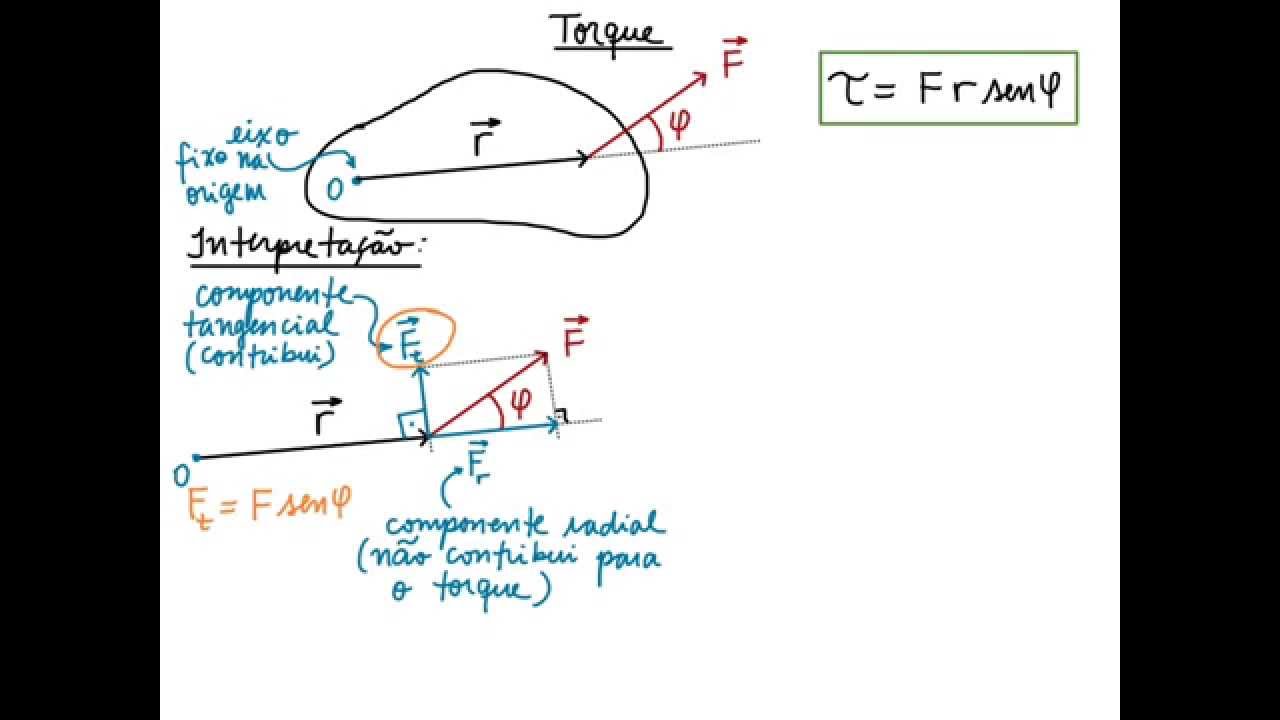 Torque
F⃗
τ = F r sen φ
φ
r⃗
eixo
fixo na
origem
O
Interpretação:
componente
tangencial
(contribui)
F⃗t
F⃗
φ
r⃗
O
F⃗r
Ft = F sen φ
componente radial
(não contribui para
o torque)